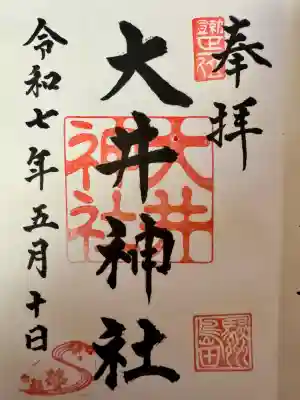 奉拝
大井神社
大井神社
令和七年五月十日